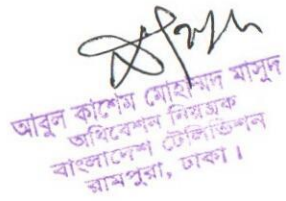 আবুল কাশেম মোহাম্মদ মাসুদ
অধিবেশন নিয়ন্ত্রক
বাংলাদেশ টেলিভিশন
রামপুরা, ঢাকা।